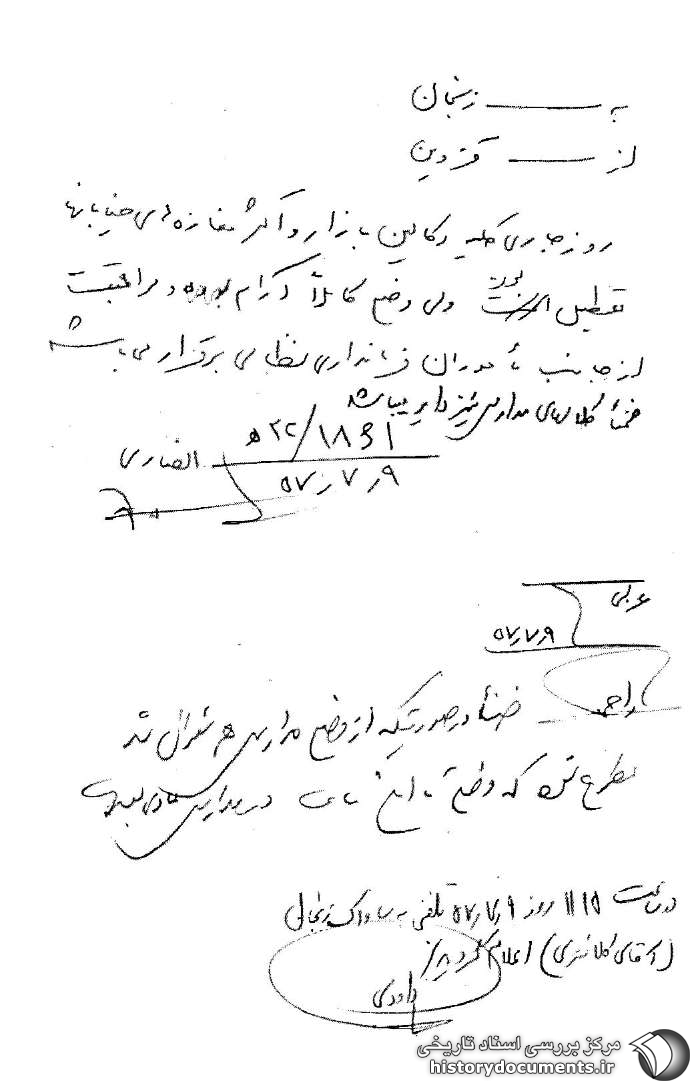 به ــــــ زنجان
از ــــــ قزوین
روز جاری کلیه دکاکین بازار و اکثر مغازه های خیابانها
تعطیل بوده ولی وضع کاملاً آرام بوده و مراقبت
از جانب مأموران فرمانداری نظامی برقرار می باشد
ضمناً کلاسهای مدارس نیز دایر میباشد
۱۸۶۱/ ۳۲ ه
انصاری
۵۷٫۷٫۹
عربی
۵۷٫۷٫۹
ضمناً در صورتیکه از وضع مدارس هم سئوال شد
مطرح که وضع تا این ساعت در مدارس عادی
در ساعت ۱۱۱۵ روز ۵۷٫۷٫۹ تلفنی به ساواک زنجان
(آقای کلانتری) اعلام گردید
داودی
مرکز بررسی اسناد تاریخی
historydocuments.ir